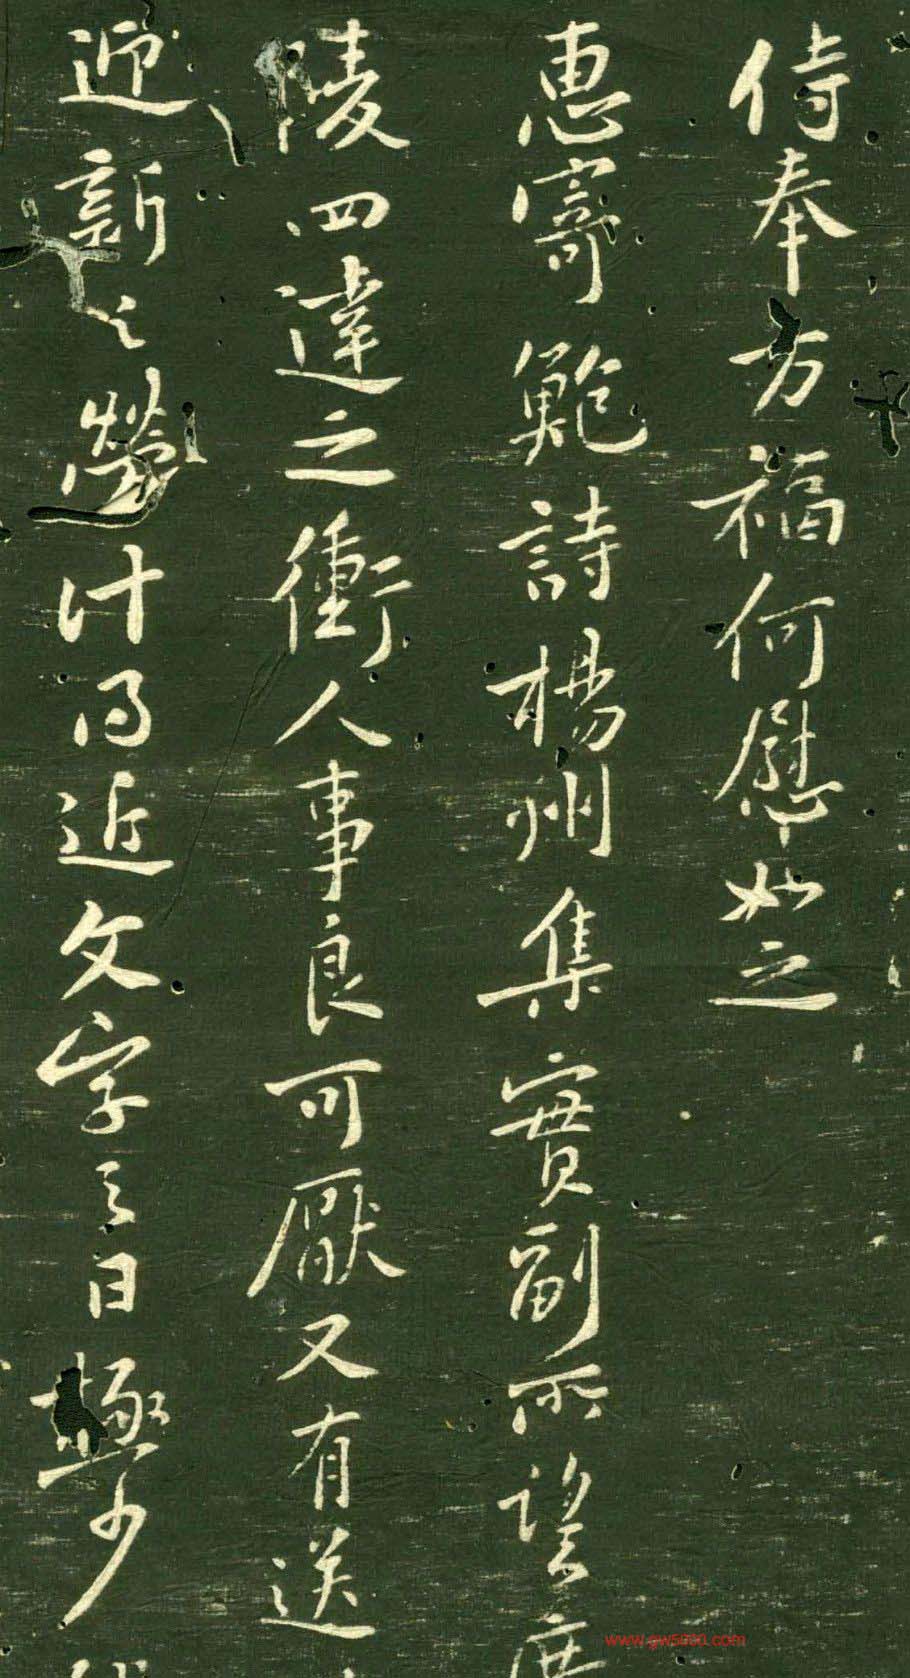 侍奉万福何慰如之
惠寄鮑詩楊州集實副所望廣
陵四達之衝人事良可厭又有送
迎新之勞計得近文字之日極少